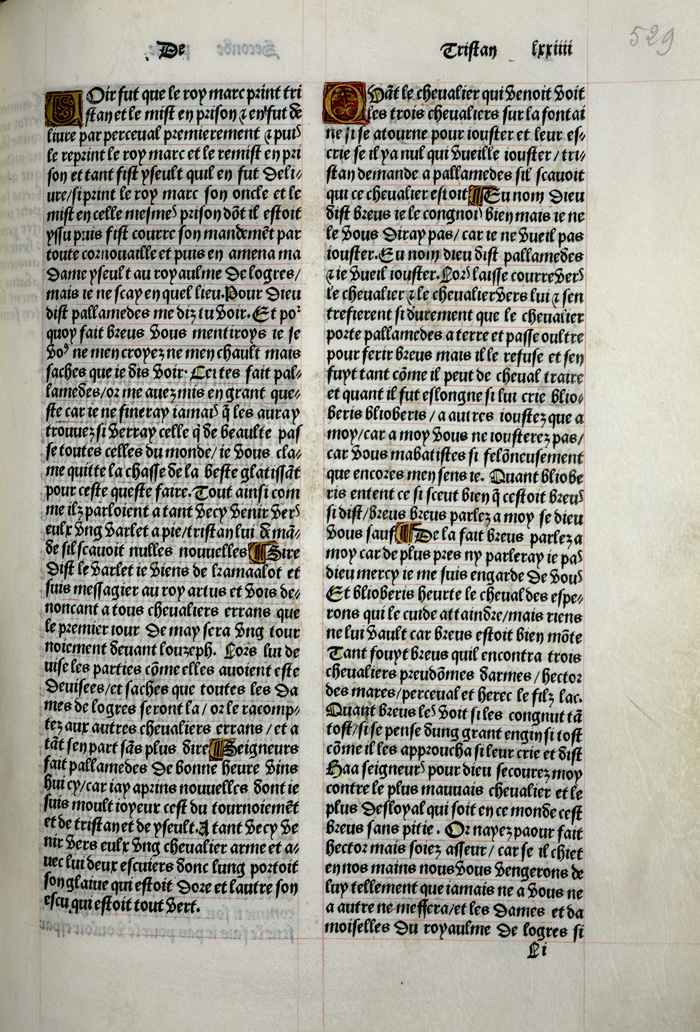 De
Tristan lxxiiii
529
VOir fut que le roy marc print tri
stan et le mist en prison ⁊ en fut de
liure par perceual premierement ⁊ puiꝰ
le reprint le roy marc et le remist en pri
son et tant fist yseult quil en fut deli⸗
ure/si print le roy marc son oncle et le
mist en celle mesmeꝰ prison dõt il estoit
yssu puis fist courre son mandemẽt par
toute cornouaille et puis en amena ma
dame yseult au royaulme de logres/
mais ie ne scay en quel lieu. Pour dieu
dist pallamedes me diz tu voir. Et poꝰ
quoy fait breus vous mentiroys ie se
voꝰ ne men croyez ne men chault mais
saches que ie dis voir. Certes fait pal⸗
lamedes/or me auez mis en grant que⸗
ste car ie ne fineray iamaiꝰ q̃ les auray
trouuez si verray celle q̃ de beaulte pas
se toutes celles du monde/ie vous cla⸗
me quitte la chasse de la beste glatissãt
pour ceste queste faire. Tout ainsi com
me ilz parloient a tant vecy venir verꝰ
eulx vng varlet a pie/tristan lui demã⸗
de sil scauoit nulles nouuelles ¶Sire
dist le varlet ie viens de kramaalot et
suis messagier au roy artus et vois de⸗
noncant a tous cheualiers errans que
le premier iour de may sera vng tour
noiement deuant louzeph. Lors lui de
uise les parties cõme elles auoient este
deuisees/et saches que toutes les da
mes de logres seront la/or le racomp⸗
tez aux autres cheualiers errans/et a
tãt sen part sãs plus dire ¶Seigneurs
fait pallamedes de bonne heure vins
hui cy/car iay aprins nouuelles dont ie
suis moult ioyeur cest du tournoiemẽt
et de tristan et de yseult. A tant vecy ve
nir vers eulx vng cheualier arme et a⸗
uec lui deux escuiers donc lung portoit
son glaiue qui estoit dore et lautre son
escu qui estoit tout vert.
QVãt le cheualier qui venoit voit
les trois cheualiers sur la fontai
ne si se atourne pour iouster et leur es⸗
crie se il ya nul qui vueille iouster/tri⸗
stan demande a pallamedes sil scauoit
qui ce cheualier estoit ¶Eu nom dieu
dist breus ie le congnoiꝰ bien mais ie ne
le vous diray pas/car ie ne vueil pas
iouster. Eu nom dieu dist pallamedes
⁊ ie vueil iouster. Lorꝰ laisse courre verꝰ
le cheualier ⁊ le cheualier vers lui ⁊ sen
trefierent si durement que le cheualier
porte pallamedes a terre et passe oultre
pour ferir breus mais il le refuse et sen
fuyt tant cõme il peut de cheual traire
et quant il fut eslongne si lui crie blio⸗
beris blioberis/a autres ioustez que a
moy/car a moy vous ne iousterez pas/
car vous mabatistes si felõneusement
que encores men sens ie. Quant bliobe
ris entent ce si sceut bien q̃ cestoit breuꝰ
si dist/breus breus parlez a moy se dieu
vous sauf ¶De la fait breus parlez a
moy car de plus pres ny parleray ie paꝰ
dieu mercy ie me suis engarde de vouꝰ
Et blioberis heurte le cheual des espe⸗
rons qui le cuide attaindre/mais riens
ne lui vault car breus estoit bien mõte
Tant fouyt breus quil encontra trois
cheualiers preudõmes darmes/hector
des mares/perceual et herec le filz lac.
Quant breus leꝰ voit si les congnut tã
tost/si se pense dung grant engin si tost
cõme il les approucha si leur crie et dist
Haa seigneurꝰ pour dieu secourez moy
contre le plus mauuais cheualier et le
plus desloyal qui soit en ce monde cest
breus sans pitie. Or nayez paour fait
hector mais soiez asseur/car se il chiet
en nos mains nous vous vengerons de
luy tellement que iamais ne a vous ne
a autre ne meffera/et les dames et da
moiselles du royaulme de logres si
Li